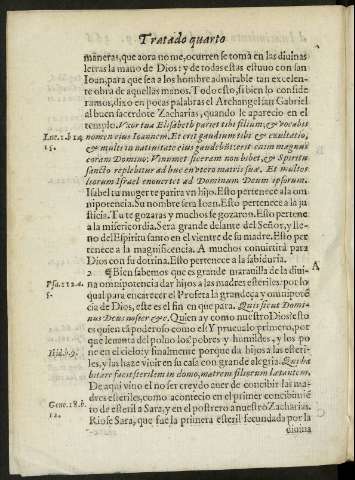 Tratado quarto
maneras, que aora no me, ocurren se tomã en las diuinas
letras la mano de Dios: y de todas estas estuuo con san
Ioan, para que sea a los hombre admirable tan excelen-
te obra de aquellas manos. Todo esto, si bien lo conside
ramos, dixo en pocas palabras el Archangel san Gabriel
al buen sacerdote Zacharias, quando le aparecio en el
templo. Vxor tua Elisabeth pariet tibi filium, & vocabis
Luc. 1. b. 14
nomen eius Ioannem. Et erit gaudium tibi & exultatio,
15.
& multi in natiuitate eius gaudebũt: erit enim magnus
coram Domino: Vinum et siceram non bibet, & Spiritu
sancto replebitur ad huc ex vtero matris suæ. Et mul tos
filiorum Israel conuertet ad Dominum Deum ipsorum.
Isabel tu muger te parira vn hijo. Esto pertenece a la om-
nipotencia. Su nombre sera Ioan. Esto pertenece a la ju
sticia. Tu te gozaras y muchos se gozaron. Esto pertene
a la misericordia. Sera grande delante del Señor, y lle-
no del Espiritu santo en el vientre de su madre. Esto per
tenece a la magnificencia. A muchos conuirtirá para
Dios con su dotrina. Esto pertenece a la sabiduria.
2 ¶ Bien sabemos que es grande marauilla de la diui-
A
Psa. 112. a.
na omnipotencia dar hijos a las madres esteriles: por lo
5.
qual para encarecer el Profeta la grandeça y omnipotẽ
cia de Dios, este es el fin en que para. Quis sicut Domi-
nus Deus noster &c. Quien ay como nuestro Dios? esto
es quien tã poderoso como el? Y prueualo primero, por
que leuanta del poluo los pobres y humildes, y los po
Ibid. b. 9.
ne en el cielo: y finalmente porque da hijos a las esteri-
les, y las haze viuir en su casa con grande alegria. Qui ha
bitare facit sterilem in domo, matrem filiorum lætantem.
De aqui vino el no ser creydo auer de concibir las ma-
dres esteriles, como acontecio en el primer concibimiẽ
Gene. 18. b.
to de esteril a Sara, y en el postrero a nuestro Zacharias.
12.
Riose Sara, que fue la primera esteril fecundada por la
diuina